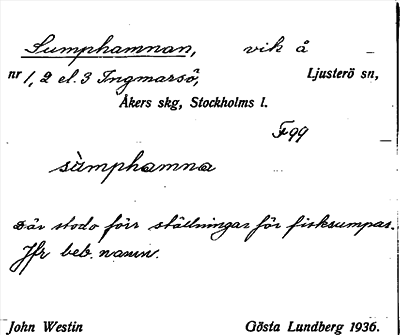 Sumphamnan, vik å
nr 1, 2 el. 3 Ingmarsö, Ljusterö sn,
Åkers skg, Stockholms l.
F99
sùmphamna
där stodo förr ställningar för fisksumpar.
Jfr beb. namn.
John Westin Gösta Lundberg 1936.